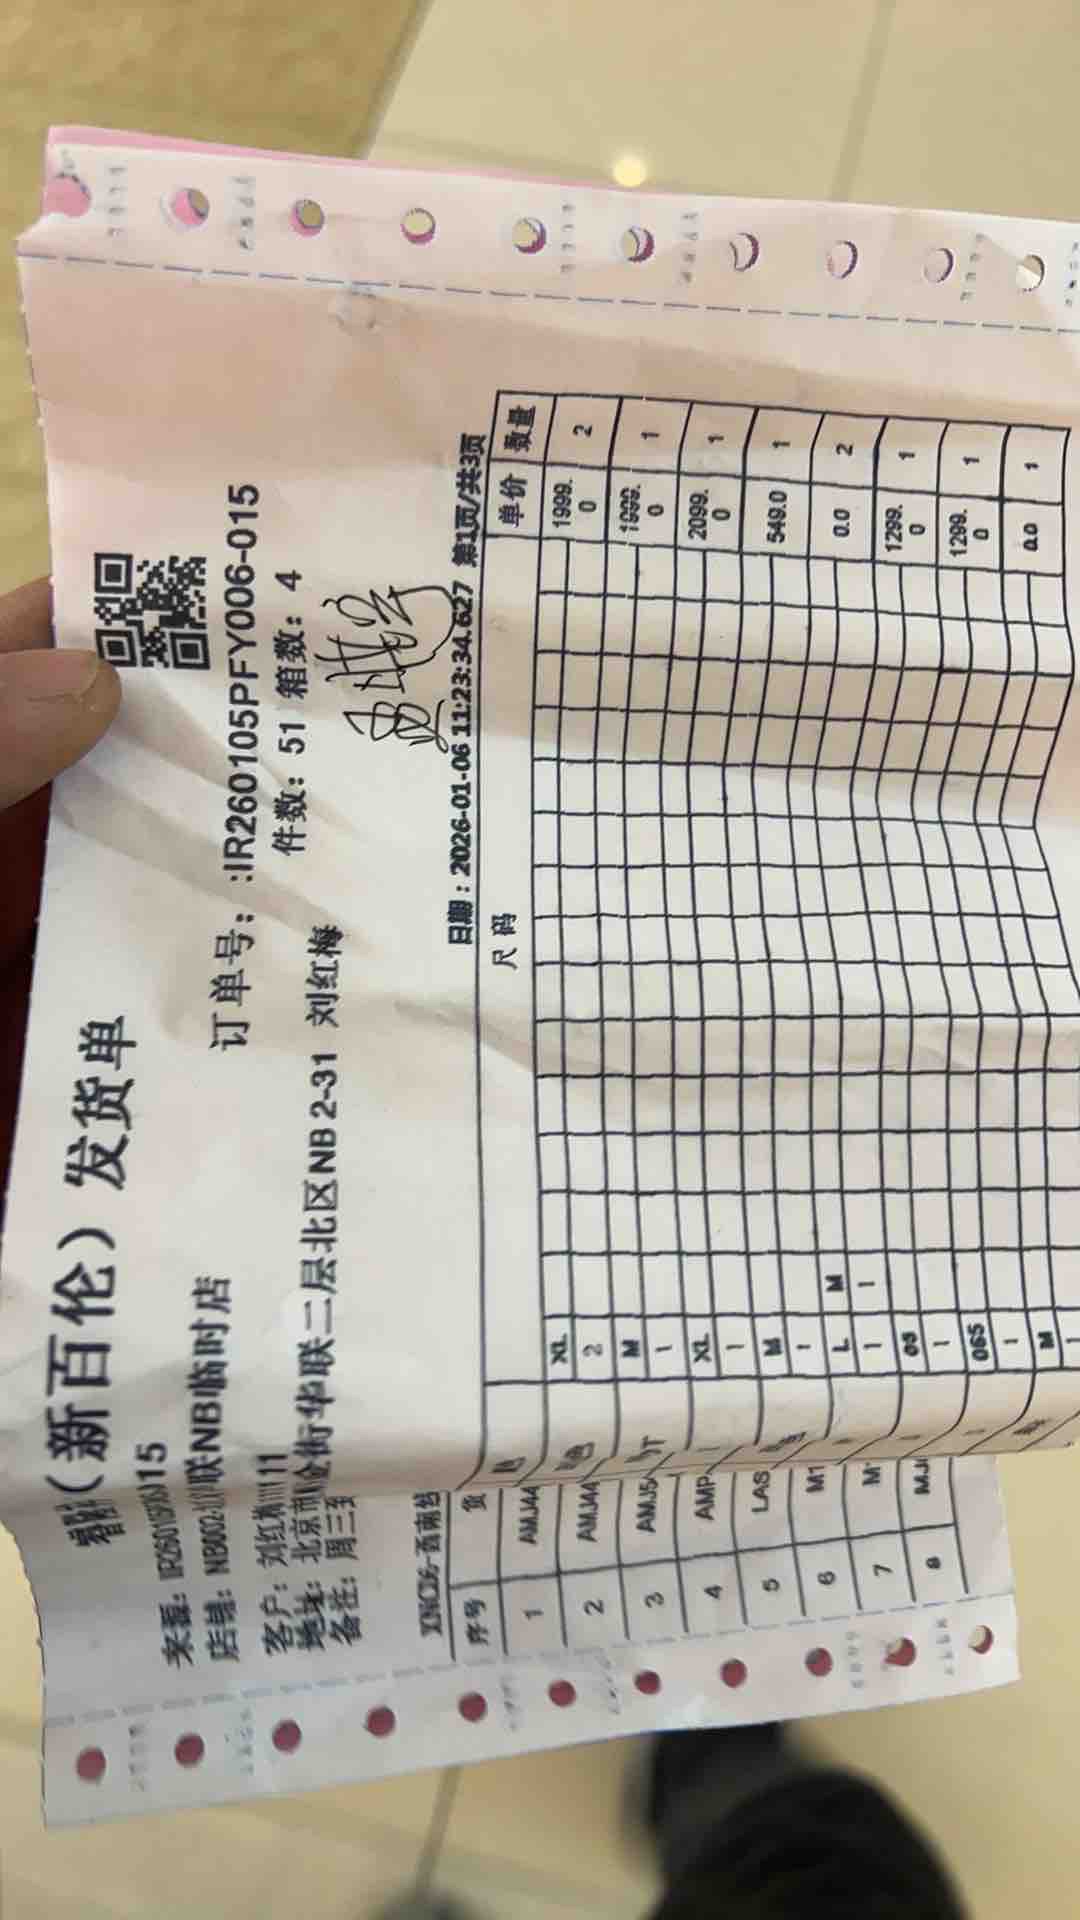 (新百伦) 发货单
订单号: :IR260105PFY006-015
店铺: NB002-联NB临时店
件数: 51 箱数: 4
客户: 刘红梅
地址: 北京市 金街华联二层北区NB 2-31 刘红梅
备注: 周三
日期: 2026-01-06 11:23:34.627 第1页/共3页
序号 货 尺码 单价 数量
1 AMJ44 XL 1999.0 2
2
2 AMJ44 M 1999.0 1
1
3 AMJ5 XL 2099.0 1
1
4 AMP M 549.0 1
1
5 LAS L M 0.0 2
1 1
6 M1 05 1299.0 1
1
7 M 065 1299.0 1
1
8 MJ M 0.0 1
1